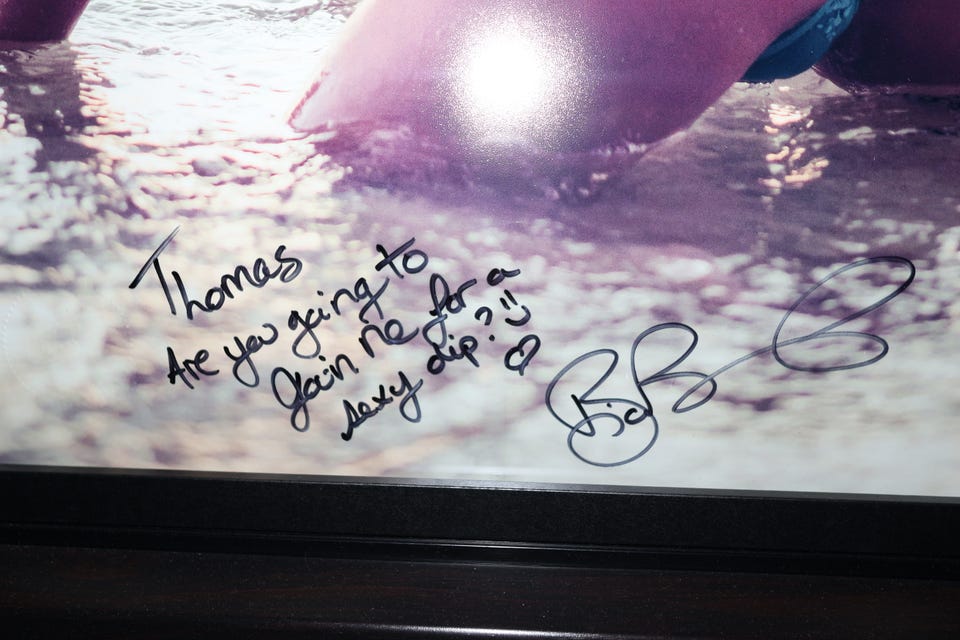 Thomas
Are you going to
Join me for a
sexy dip? :)
♡